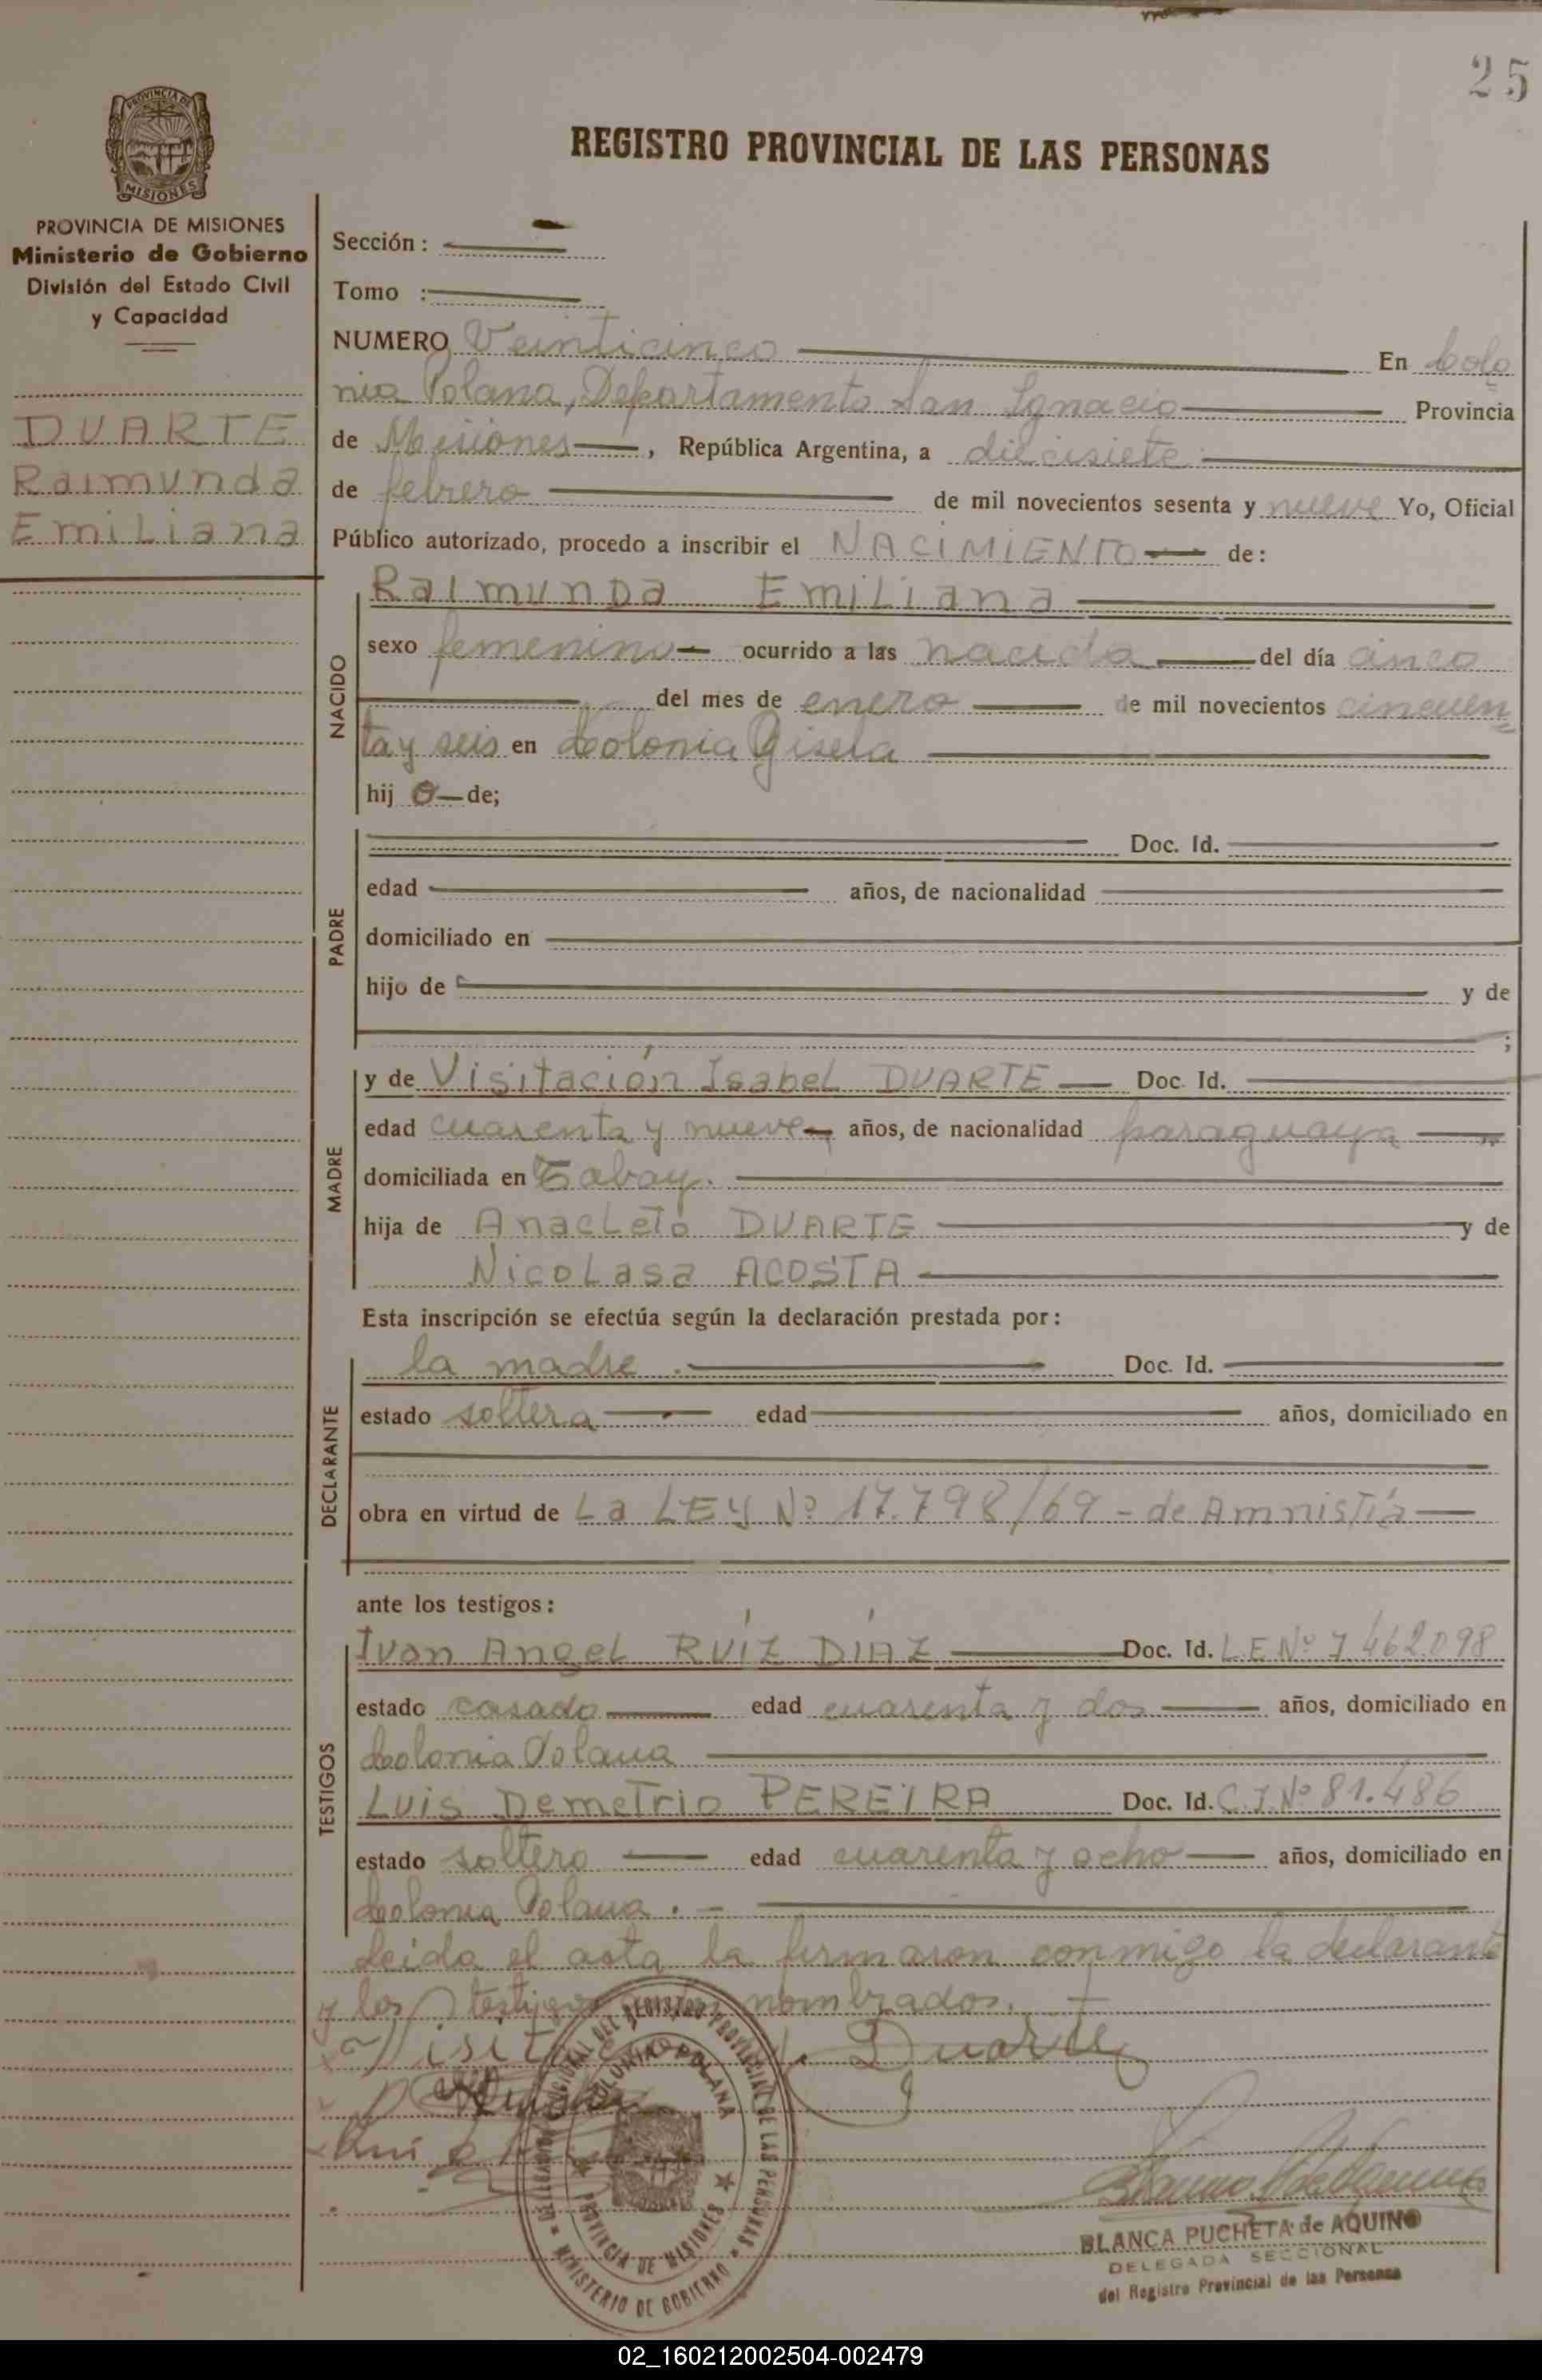 25
REGISTRO PROVINCIAL DE LAS PERSONAS
PROVINCIA DE MISIONES
PROVINCIA DE MISIONES
Ministerio de Gobierno
División del Estado Civil
y Capacidad
DUARTE
Raimunda
Emiliana
Sección:
Tomo :
NUMERO Veinticinco En Colo
nia Polana, Departamento San Ignacio Provincia
de Misiones, República Argentina, a diecisiete
de febrero de mil novecientos sesenta y nueve Yo, Oficial
Público autorizado, procedo a inscribir el NACIMIENTO de:
NACIDO
Raimunda Emiliana
sexo femenino ocurrido a las nacida del día cinco
del mes de enero de mil novecientos cincuen
ta y seis en Colonia Gisela
hij de;
PADRE
Doc. Id.
edad años, de nacionalidad
domiciliado en
hijo de y de
;
MADRE
y de Visitación Isabel DUARTE Doc. Id.
edad cuarenta y nueve años, de nacionalidad paraguaya
domiciliada en Tabay.
hija de Anacleto DUARTE y de
Nicolasa ACOSTA
Esta inscripción se efectúa según la declaración prestada por:
DECLARANTE
la madre. Doc. Id.
estado soltera edad años, domiciliado en
obra en virtud de La LEY Nº 17.798/69 - de Amnistía
ante los testigos:
TESTIGOS
Ivan Angel RUÍZ DÍAZ Doc. Id. L.E Nº 7.462.098
estado casado edad cuarenta y dos años, domiciliado en
Colonia Polana
Luis Demetrio PEREIRA Doc. Id. C.I. Nº 81.486
estado soltero edad cuarenta y ocho años, domiciliado en
Colonia Polana. -
Leida el acta la firmaron conmigo la declarante
y los testigos nombrados.
Duarte
REGISTRO PROVINCIAL DE LAS PERSONAS
COLONIA POLANA
PROVINCIA DE MISIONES
MINISTERIO DE GOBIERNO
BLANCA PUCHETA de AQUINO
DELEGADA SECCIONAL
del Registro Provincial de las Personas
02_160212002504-002479